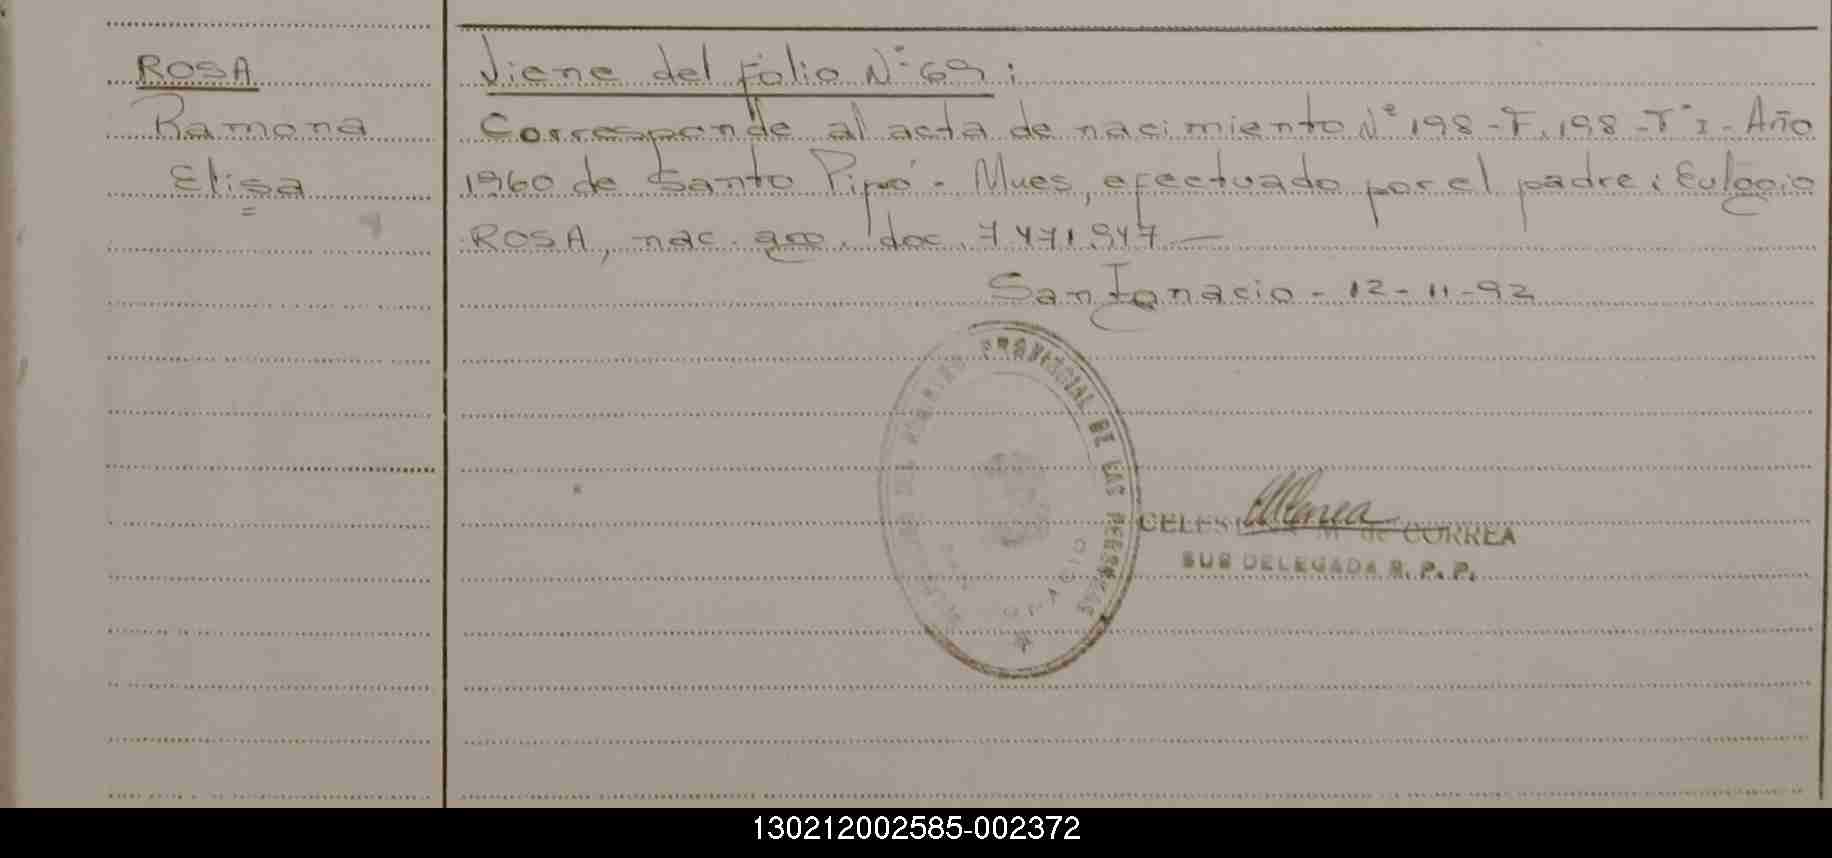 ROSA
Ramona
Elisa
Viene del folio Nº 69:
Corresponde al acta de nacimiento Nº 198 - F. 198 - Tº I - Año
1960 de Santo Pipó - Mnes, efectuado por el padre: Eulogio
ROSA, nac. arg. doc. 7471947 —
San Ignacio - 12 - 11 - 92
PROVINCIAL DE LAS PERSONAS
M. de CORREA
SUB DELEGADA R. P. P.
130212002585-002372